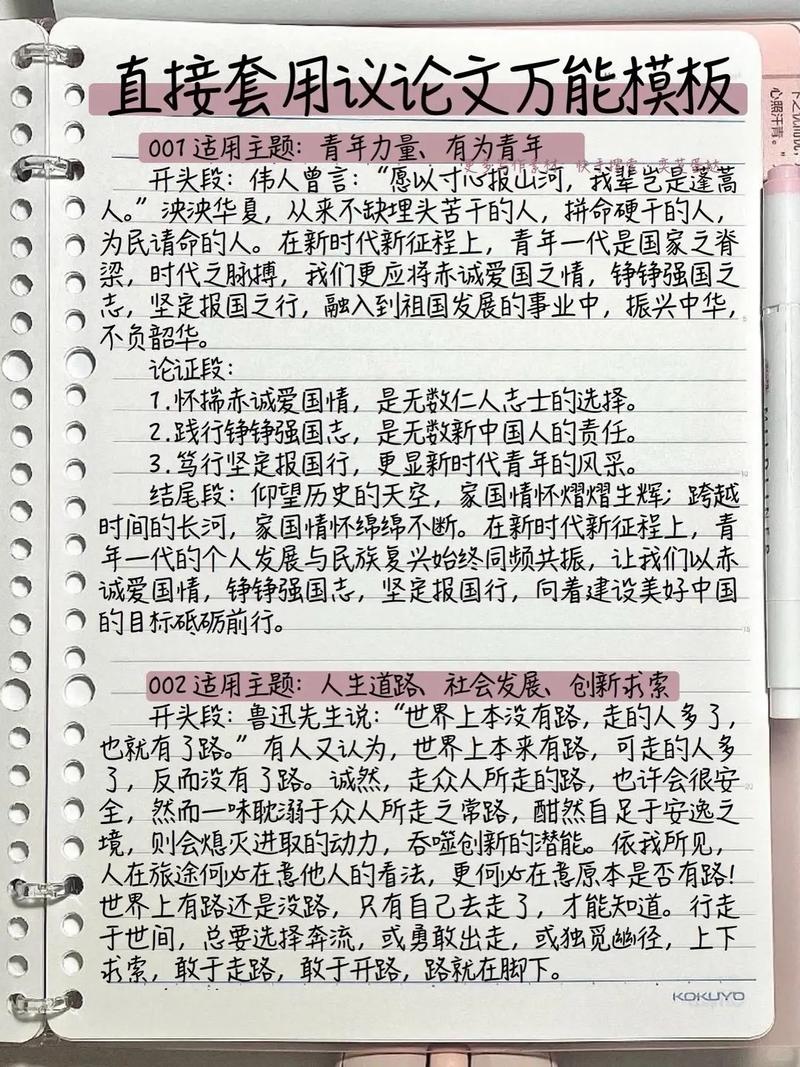 直接套用议论文万能模板
001 适用主题：青年力量、有为青年
开头段：伟人曾言：“愿以寸心报山河，我辈岂是蓬蒿
人。”泱泱华夏，从来不缺埋头苦干的人，拼命硬干的人，
为民请命的人。在新时代新征程上，青年一代是国家之脊
梁，时代之脉搏，我们更应将赤诚爱国之情，铮铮强国之
志，坚定报国之行，融入到祖国发展的事业中，振兴中华，
不负韶华。
论证段：
1.怀揣赤诚爱国情，是无数仁人志士的选择。
2.践行铮铮强国志，是无数新中国人的责任。
3.笃行坚定报国行，更显新时代青年的风采。
结尾段：仰望历史的天空，家国情怀熠熠生辉；跨越
时间的长河，家国情怀绵绵不断。在新时代新征程上，青
年一代的个人发展与民族复兴始终同频共振，让我们以赤
诚爱国情，铮铮强国志，坚定报国行，向着建设美好中国
的目标砥砺前行。
002 适用主题：人生道路、社会发展、创新求索
开头段：鲁迅先生说：“世界上本没有路，走的人多了，
也就有了路。”有人又认为，世界上本来有路，可走的人多
了，反而没有了路。诚然，走众人所走的路，也许会很安
全，然而一味耽溺于众人所走之常路，酣然自足于安逸之
境，则会熄灭进取的动力，吞噬创新的潜能。依我所见，
人在旅途何必在意他人的看法，更何必在意原本是否有路！
世界上有路还是没路，只有自己去走了，才能知道。行走
于世间，总要选择奔流，或勇敢出走，或独觅幽径，上下
求索，敢于走路，敢于开路，路就在脚下。
KOKUYO
心照汗青。”
MILDLINER